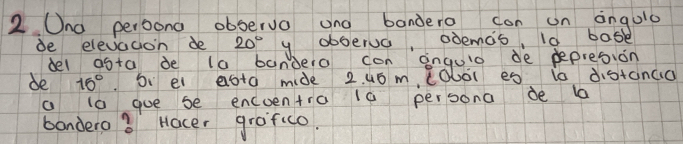 2. Una persona observa una bandera con un ángulo
de elevación de 20° y observa, además, la base
del asta de la bandera con ángulo de depresión
de 15°. Si el asta mide 2.40 m, ¿Cuál es la distancia
a la que se encuentra la persona de la
bandera? Hacer gráfico.